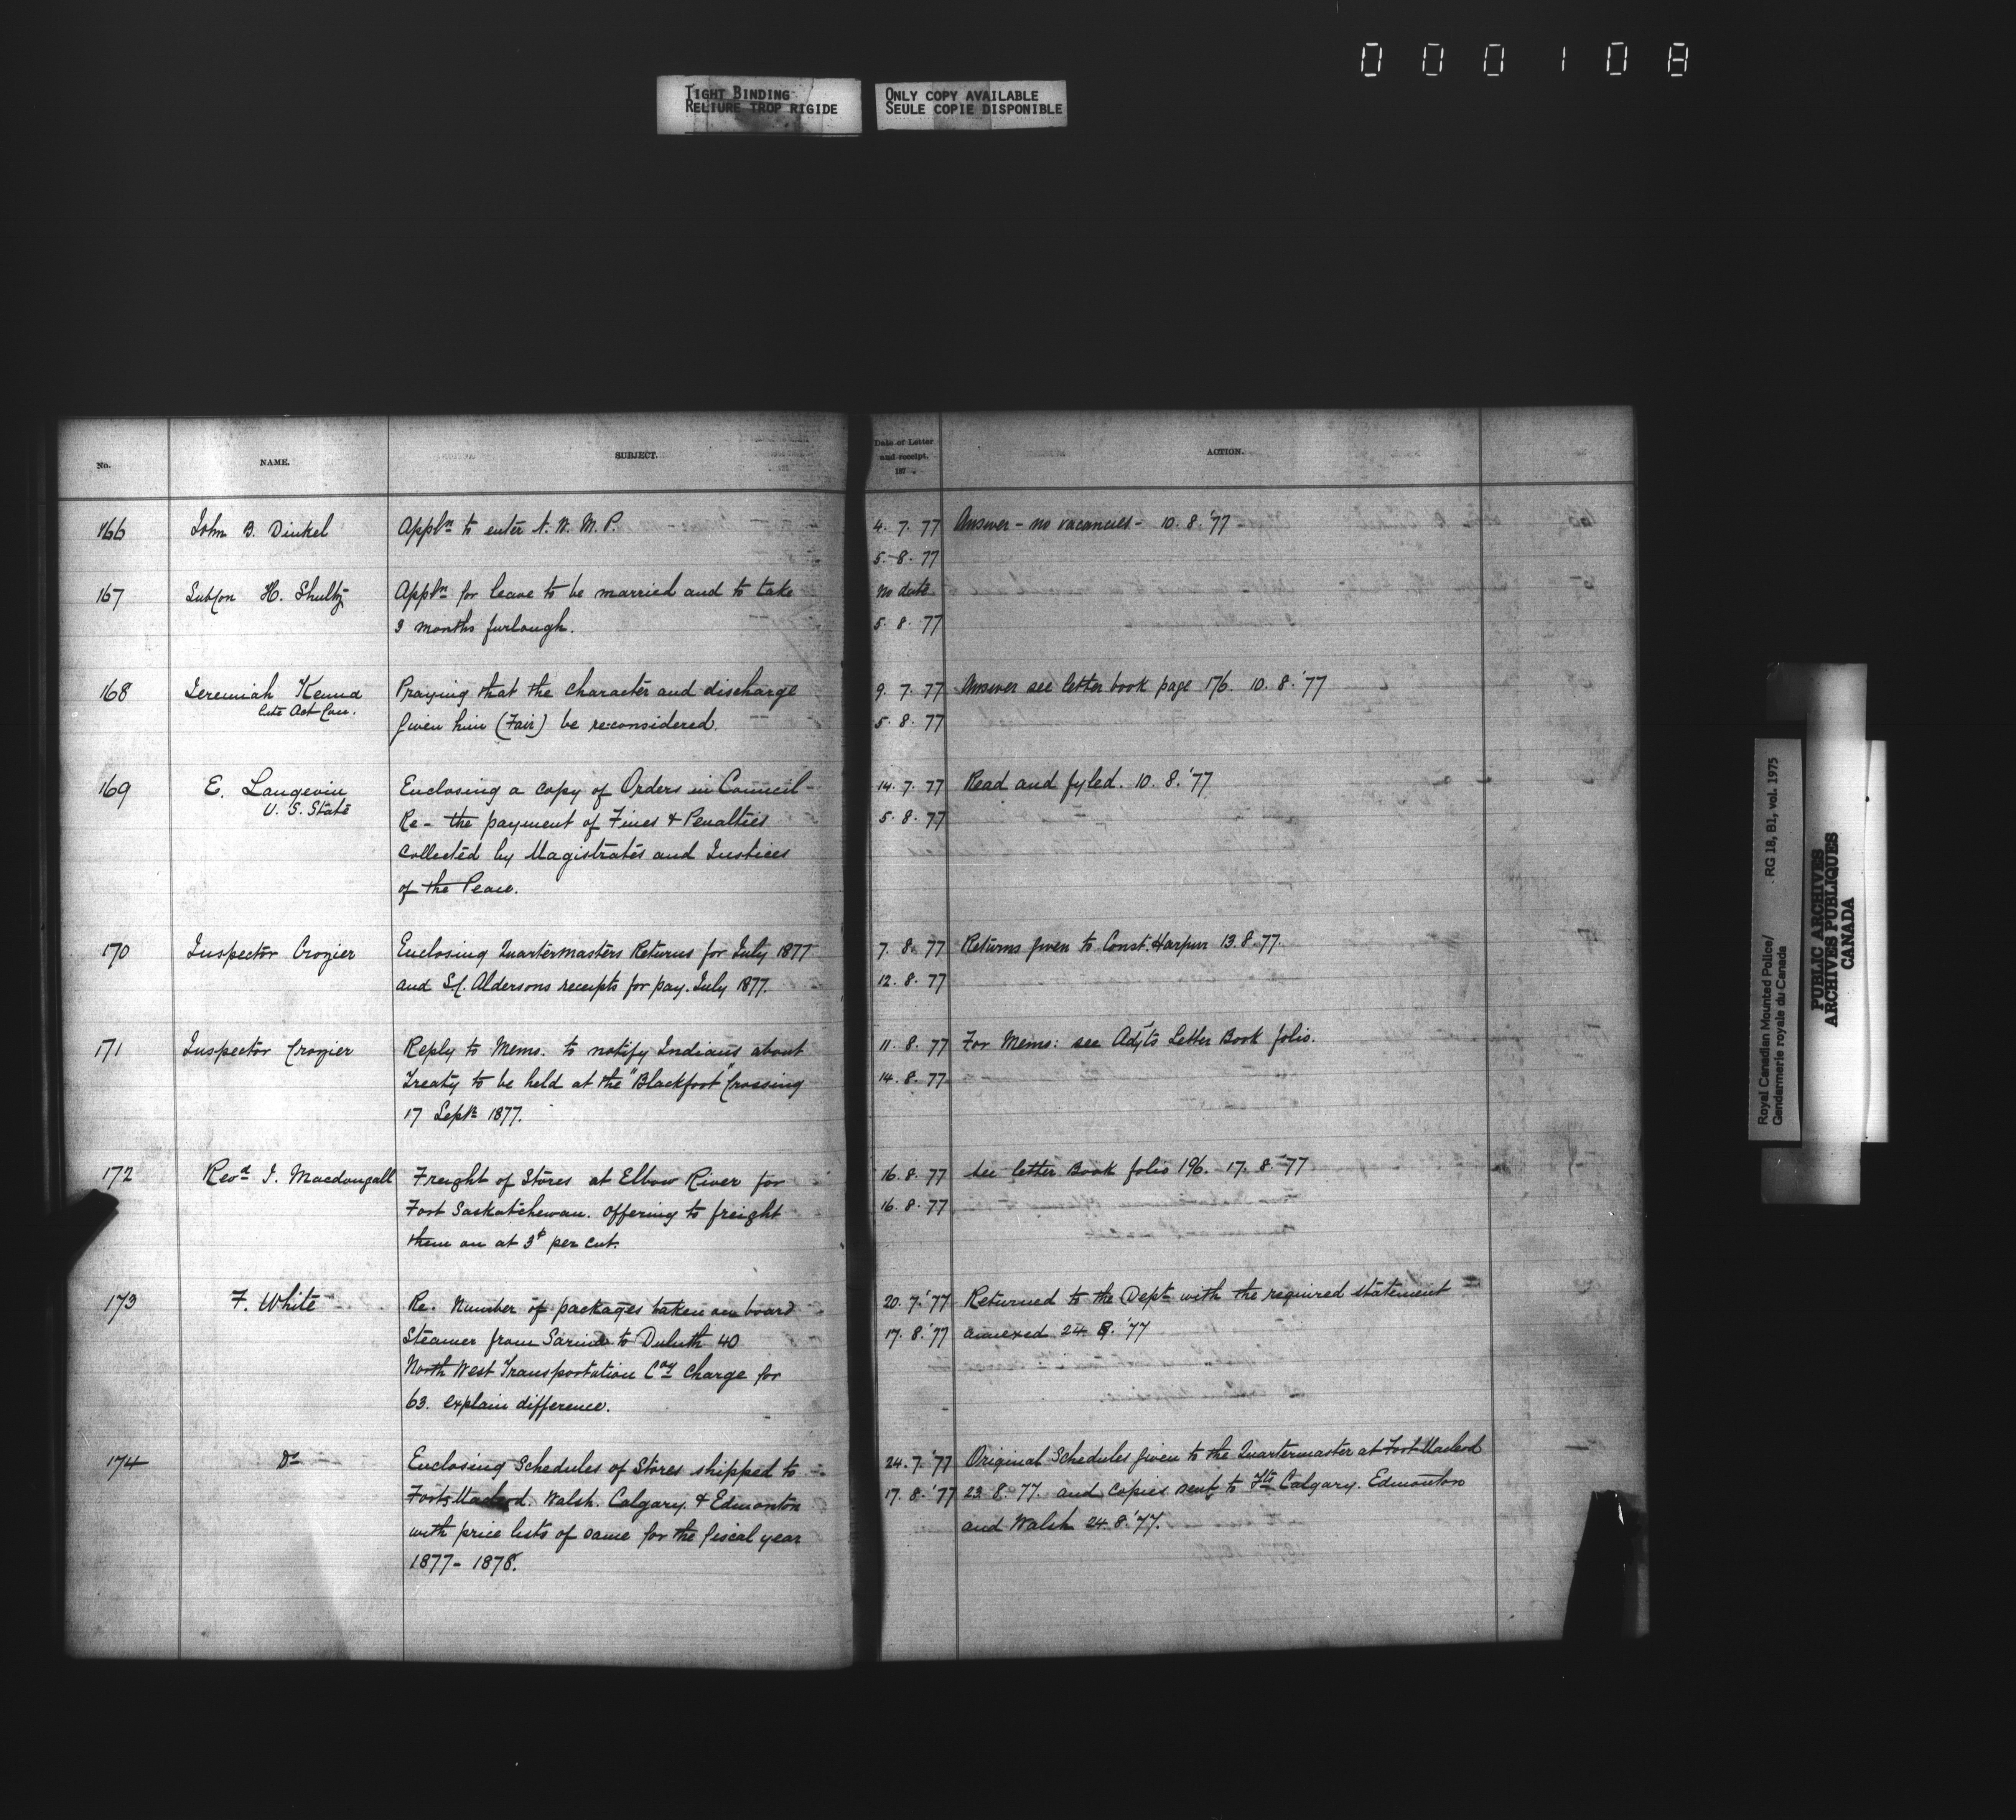 000108
TIGHT BINDING
RELIURE TROP RIGIDE
ONLY COPY AVAILABLE
SEULE COPIE DISPONIBLE
No. NAME. SUBJECT. Date of Letter and receipt. 187 . ACTION.
166 John B. Dinkel Appln to enter N. W. M. P. 4. 7. 77 Answer - no vacancies - 10. 8. '77
5. 8. 77
167 SubCon H. Shultz Appln for leave to be married and to take No date
3 months furlough. 5. 8. 77
168 Jeremiah Kenna Praying that the character and discharge 9. 7. 77 Answer see letter book page 176. 10. 8. '77
late Act Con.
given him (Fair) be reconsidered. 5. 8. 77
169 E. Langevin Enclosing a copy of Orders in Council - 14. 7. 77 Read and fyled. 10. 8. '77
U. S. State
Re - the payment of Fines & Penalties 5. 8. 77
collected by Magistrates and Justices
of the Peace.
170 Inspector Crozier Enclosing Quartermasters Returns for July 1877 7. 8. 77 Returns given to Const. Harpur 13. 8. 77.
and Aldersons receipts for pay. July 1877. 12. 8. 77
171 Inspector Crozier Reply to Memo. to notify Indians about 11. 8. 77 For Memo: see Adjts Letter Book folio.
Treaty to be held at the "Blackfoot" Crossing 14. 8. 77
17 Septr 1877.
172 Revd J. Macdougall Freight of Stores at Elbow River for 16. 8. 77 See letter Book folio 196. 17. 8. '77
Fort Saskatchewan. offering to freight 16. 8. 77
them on at 3$ per cwt.
173 F. White Re. Number of packages taken on board 20. 7. '77 Returned to the Dept with the required statement
Steamer from Sarnia to Duluth 40 17. 8. '77 annexed 24. 8. '77
North West Transportation Coy charge for
63. explain difference.
174 Do Enclosing Schedules of Stores shipped to 24. 7. '77 Original Schedules given to the Quartermaster at Fort Macleod
Forts Macleod. Walsh. Calgary. & Edmonton 17. 8. '77 23. 8. 77. and copies sent to Fts Calgary. Edmonton
with price lists of same for the fiscal year and Walsh 24. 8. '77.
1877 - 1878.
Royal Canadian Mounted Police/
Gendarmerie royale du Canada
RG 18, B1, vol. 1975
PUBLIC ARCHIVES
ARCHIVES PUBLIQUES
CANADA